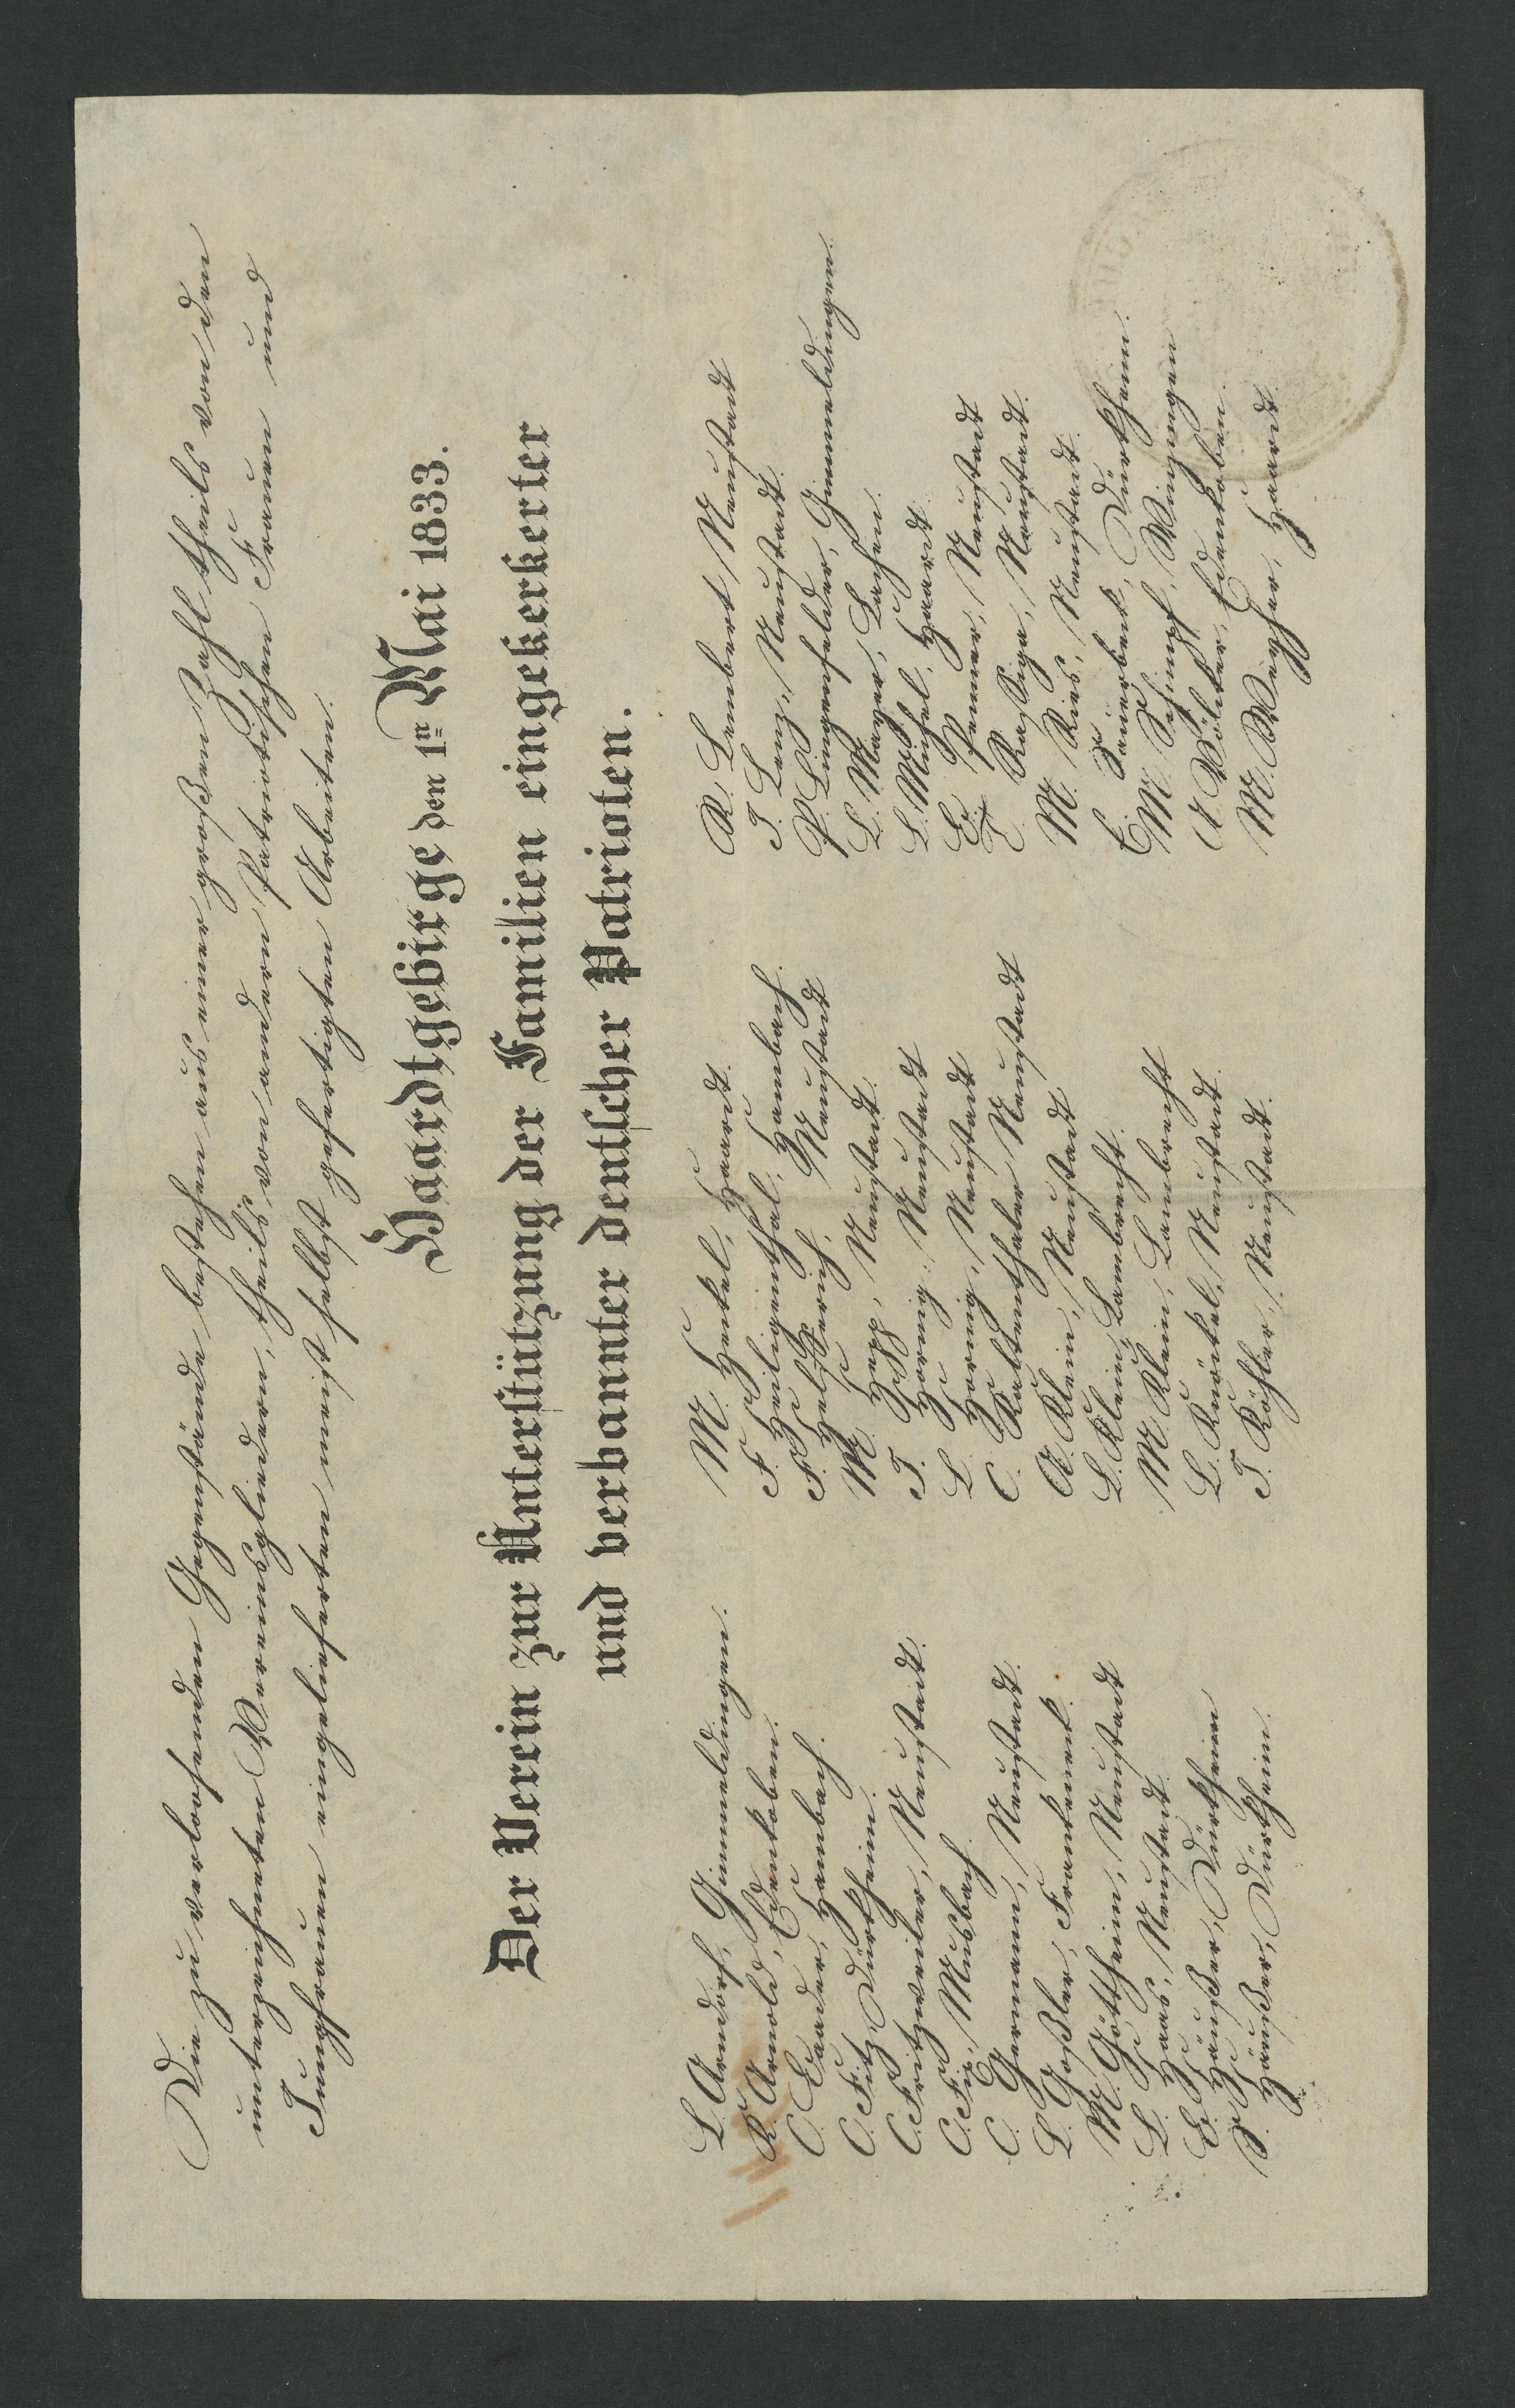 Die zu verloosenden Gegenstände bestehen aus einer großen Zahl theils von den
unterzeichneten Vereinsgliedern, theils von andern patriotischen Frauen und
Jungfrauen eingelieferten meist selbst gefertigten Arbeiten.
Haardtgebirge den 1n Mai 1833.
Der Verein zur Unterstützung der Familien eingekerkerter
und verbannter deutscher Patrioten.
L. Arndorf, Gimmeldingen.
K. Arnold, Edenkoben.
C. Baader, Hambach.
C. Fitz, Dürkheim.
C. Fritzweiler, Neustadt.
C. Musbach.
C. Germann, Neustadt.
L. Goßler, Frankeneck.
M. Göttheim, Neustadt
L. Haas, Neustadt.
E. Häußer, Dürkheim
S. Häußer, Dürkheim.
M. Henkel, Haardt.
F. Heiligenthal, Hambach.
F. Helfferich, Neustadt
M. Hepp, Neustadt.
J. Hornig, Neustadt
L. Hornig, Neustadt
C. Kaltenthaler Neustadt
A. Klein, Neustadt
L. Klein, Lambrecht.
M. Klein, Lambrecht
L. Knöckel, Neustadt.
J. Köhler, Neustadt.
R. Lembert Neustadt
J. Lenz, Neustadt.
P. Lingenfelder, Gimmeldingen.
L. Mayer, Lachen.
L. Michel, Haardt.
E. Penner, Neustadt
C. Rassiga, Neustadt.
M. Ries, Neustadt.
E. Sauerbeck, Dürkheim.
M. Schimpf, Winzingen
A. Völcker, Edenkoben.
M. Weyher, Haardt.